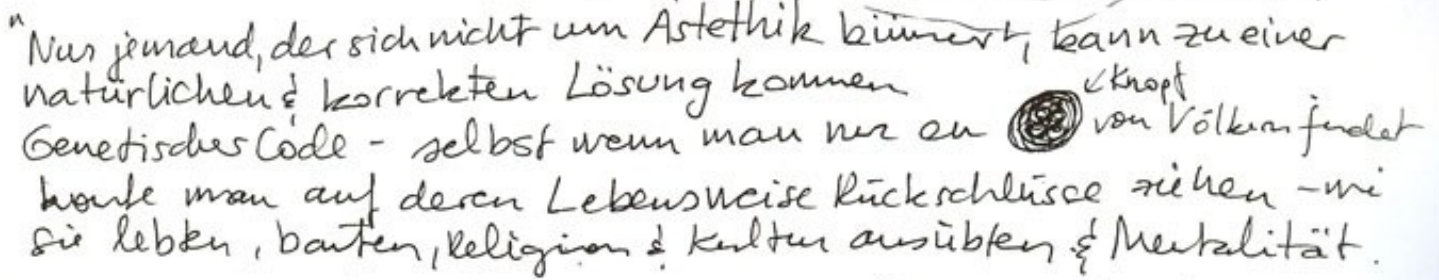 "Nur jemand, der sich nicht um Astethik kümmert, kann zu einer
natürlichen & korrekten Lösung kommen
↙Knopf
Genetischer Code - selbst wenn man nur en von Völkern findet
konnte man auf deren Lebensweise Rückschlüsse ziehen - wie
sie lebten, bauten, Religion & Kultur ausübten & Mentalität.